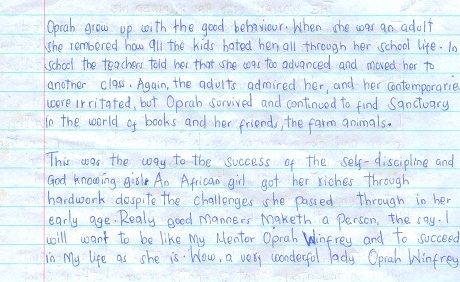 Oprah grew up with the good behaviour. When she was an adult
she rembered how all the kids hated her all through her school life. In
school the teachers told her that she was too advanced and moved her to
another class. Again, the adults admired her, and her contemporaries
were irritated, but Oprah survived and continued to find Sanctuary
in the world of books and her friends, the farm animals.
This was the way to the success of the self-discipline and
God knowing girl. An African girl got her riches through
hardwork despite the challenges she passed through in her
early age. Realy good Manners Maketh a Person, the say. I
will want to be like My Mentor Oprah Winfrey and to succeed
in My life as she is. Wow, a very wonderful lady Oprah Winfrey